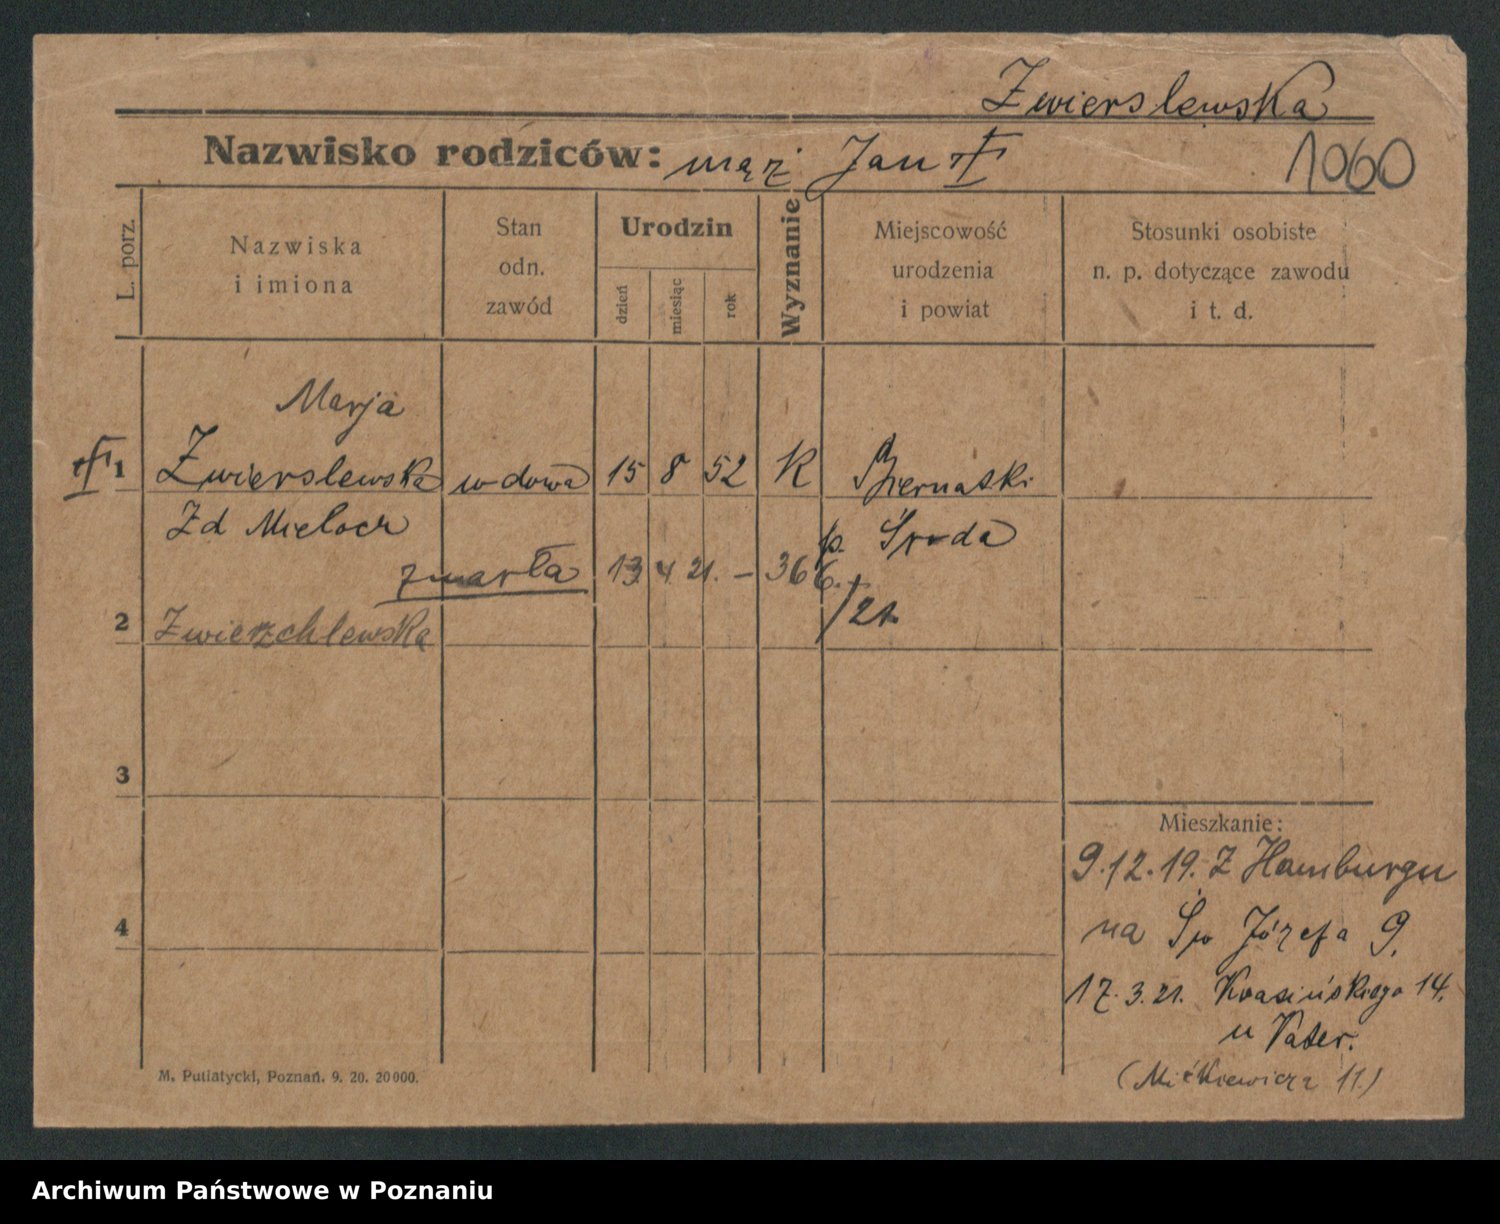 Zwierslewska
Nazwisko rodziców: mąż Jan
1060
L. porz.
Nazwiska
i imiona
Stan
odn.
zawód
Urodzin
dzień
miesiąc
rok
Wyznanie
Miejscowość
urodzenia
i powiat
Stosunki osobiste
n. p. dotyczące zawodu
i t. d.
Marja
1 Zwierslewska wdowa 15 8 52 K Biernatki
Zd Mielocz p. Środa
zmarła 13 4. 21. – 366.
/21.
2 Zwierzchlewska
3
Mieszkanie:
9.12.19. Z Hamburgu
4
na Św Józefa 9.
17.3.21. Krasińskiego 14.
u Vater.
(Mickiewicza 11.)
M. Putiatycki, Poznań. 9. 20. 20000.
Archiwum Państwowe w Poznaniu